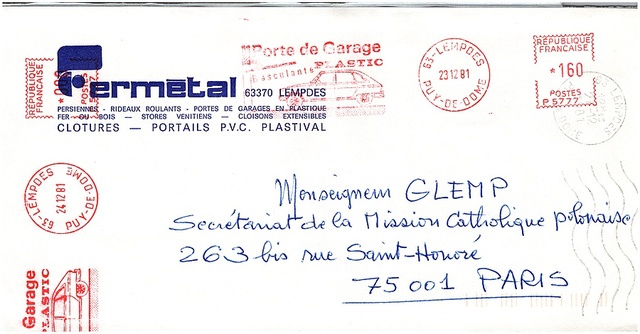 Fermétal
63370 LEMPDES
PERSIENNES - RIDEAUX ROULANTS - PORTES DE GARAGES EN PLASTIQUE
FER OU BOIS — STORES VENITIENS — CLOISONS EXTENSIBLES
CLOTURES — PORTAILS P.V.C. PLASTIVAL
Porte de Garage
PLASTIC
basculants
63-LEMPDES
23 12 81
PUY-DE-DOME
REPUBLIQUE
FRANCAISE
*160
POSTES
P 5777
REPUBLIQUE
FRANCAISE
POSTES
63-LEMPDES
24 12 81
PUY-DE-DOME
Monseigneur GLEMP
Secrétariat de la Mission Catholique polonaise
263 bis rue Saint-Honoré
75001 PARIS
Garage
PLASTIC